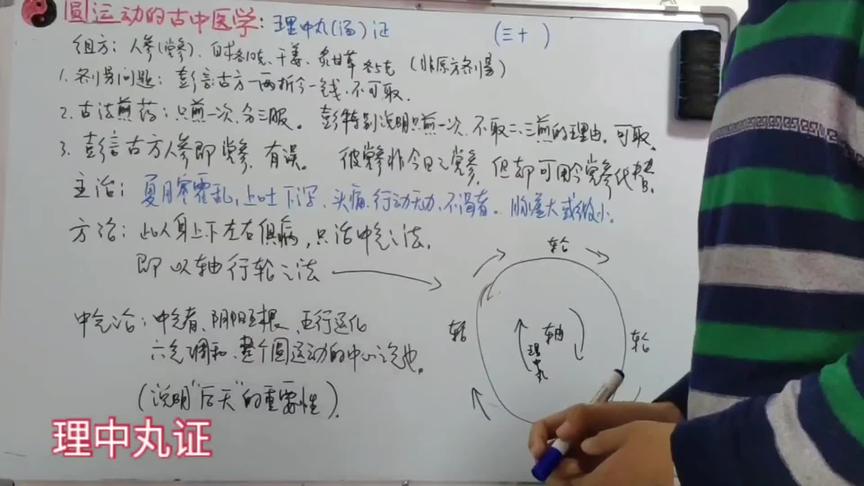 圆运动的古中医学：理中丸(汤)证
(三十)
组方：人参(党参)、白术各10克、干姜、炙甘草各5克 (非原方剂量)
1.剂量问题：彭言古方一两折今一钱，不可取。
2.古法煎药：只煎一次，分三服。彭特别说明只煎一次，不取二、三煎的理由，可取。
3.彭言古方人参即党参，有误。彼党参非今日之党参，但却可用今党参代替。
主治：夏月寒霍乱，上吐下泻，头痛，行动无力，不渴者。脉大或微小。
方治：此人身上下左右俱病，只治中气之法，
即以轴行轮之法
中气治：中气者，阴阳互根，五行运化
六气调和，整个圆运动的中心之气也。
(说明"后天"的重要性)。
轮
轮
轴
轮
理中丸
理中丸证